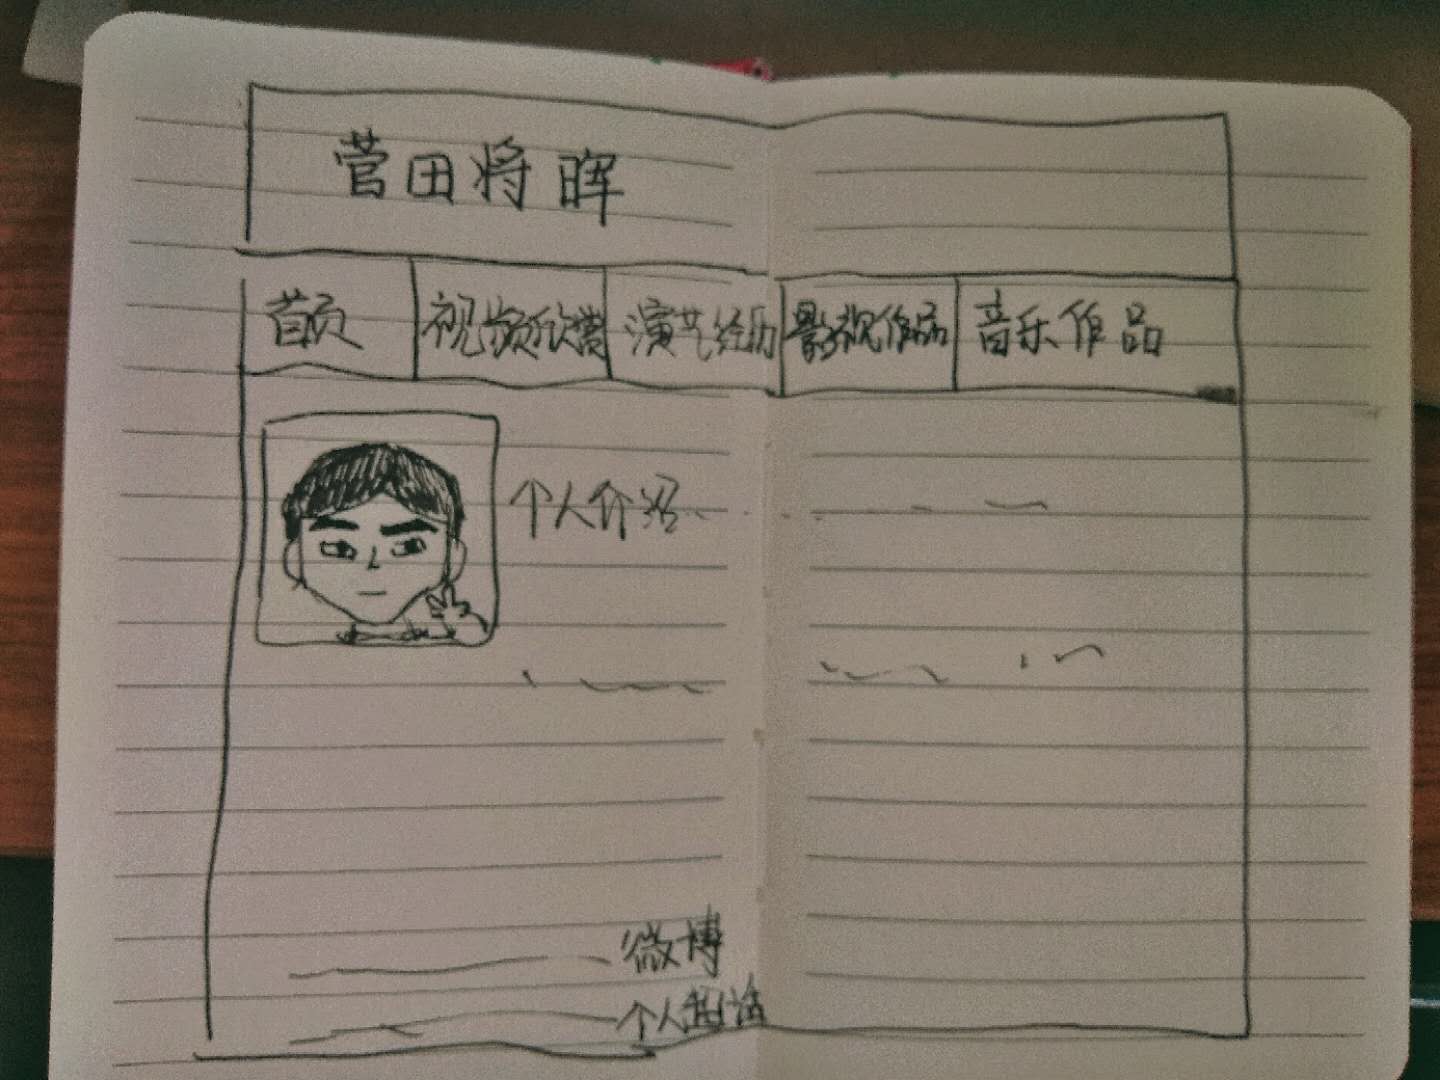 菅田将晖
首页 视频欣赏 演艺经历 影视作品 音乐作品
个人介绍
微博
个人超话